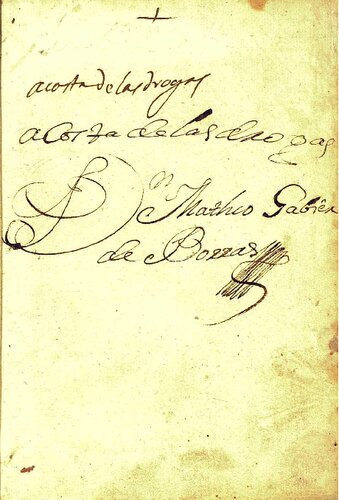 acosta de las drogas
acosta de las drogas
Dn Mathio Gabiên
de Borras